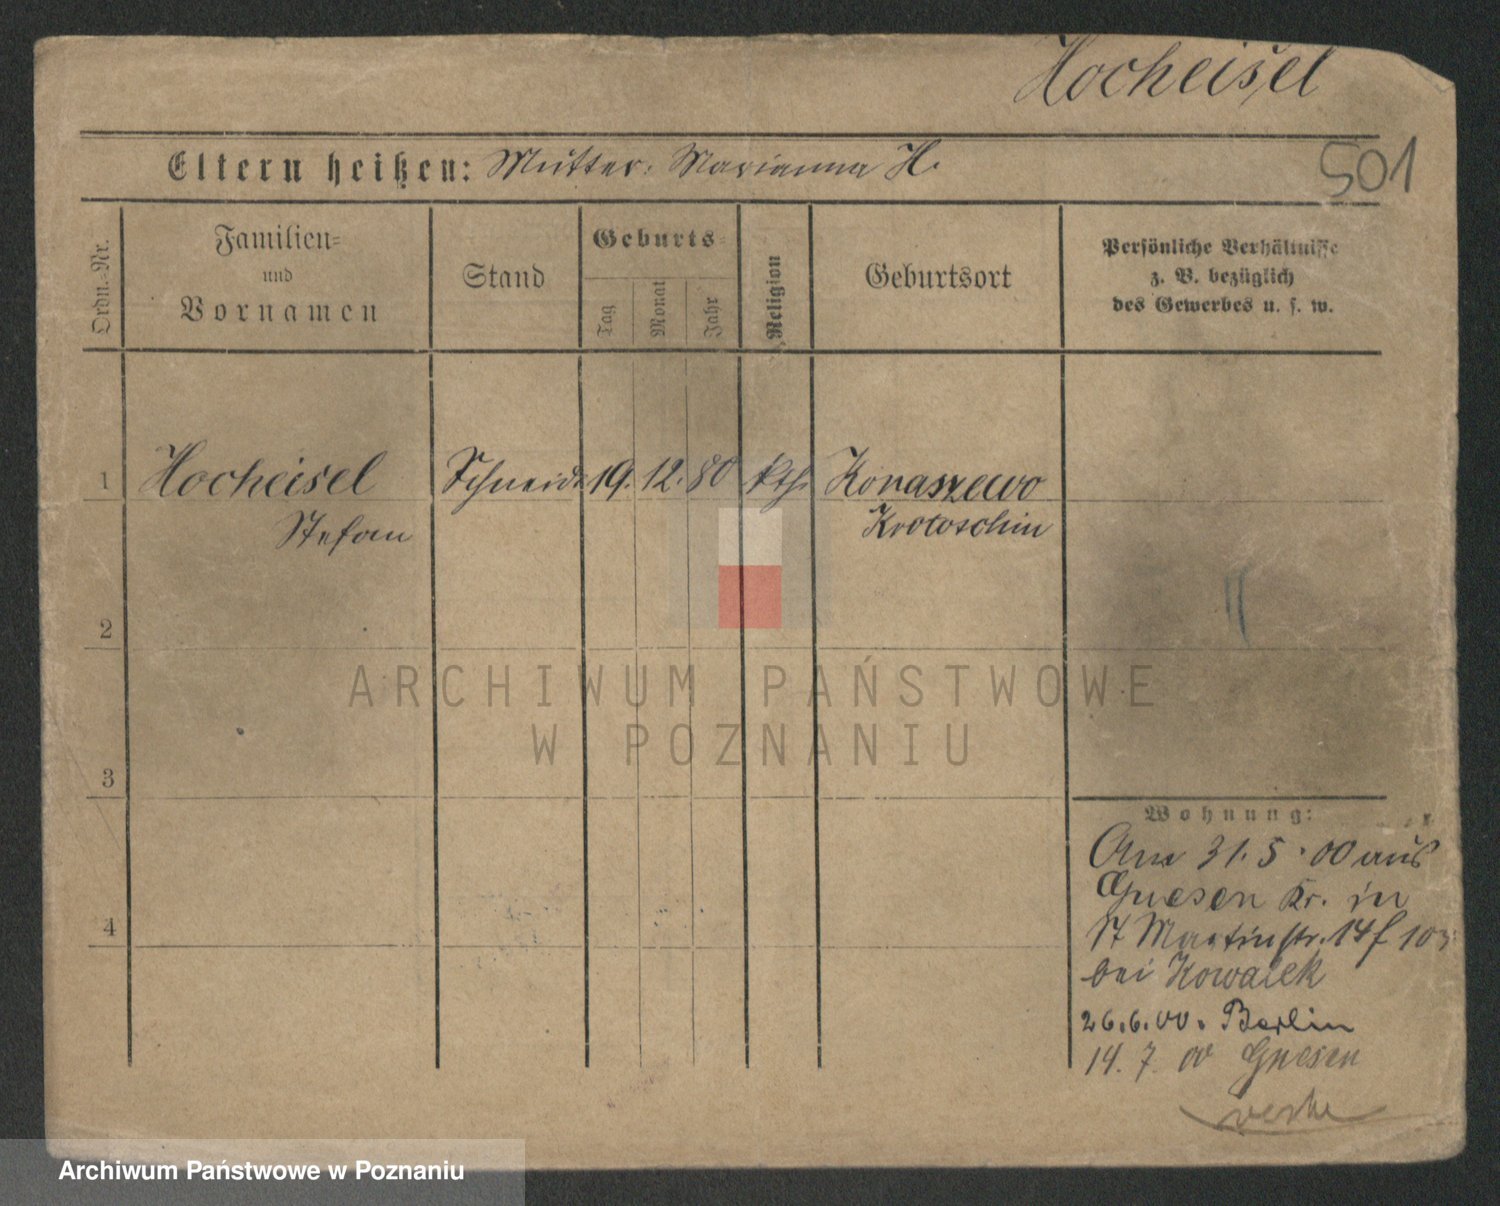 Hocheisel
Eltern heißen: Mutter: Marianna H.
501
Ordn.-Nr.
Familien-
und
Vornamen
Stand
Geburts-
Tag
Monat
Jahr
Religion
Geburtsort
Persönliche Verhältnisse
z. B. bezüglich
des Gewerbes u. s. w.
1 Hocheisel Schneider 19. 12. 80 kth. Konaszewo
Stefan Krotoschin
2
ARCHIWUM PAŃSTWOWE
W POZNANIU
3
Wohnung:
Am 31.5.00 aus
Gnesen Kr. in
St Martinstr. 14f 103
bei Kowalek
26.6.00. Berlin
14. 7. 00 Gnesen
4
Archiwum Państwowe w Poznaniu